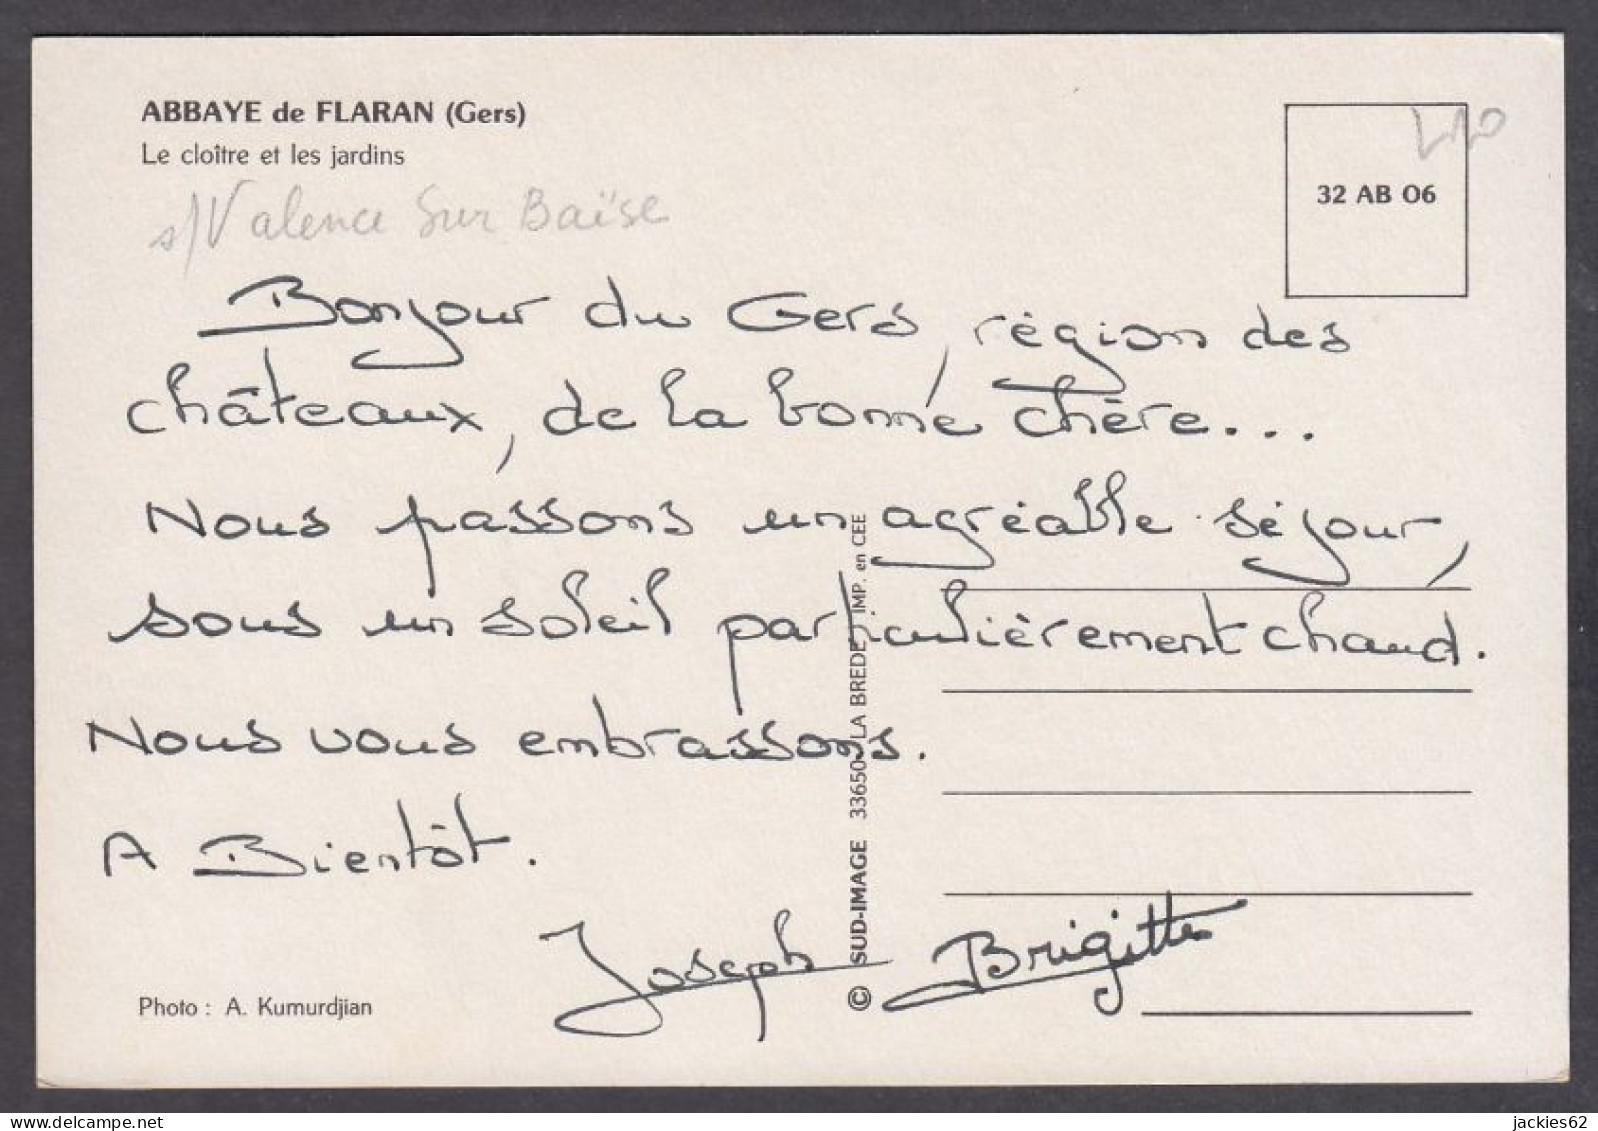 ABBAYE de FLARAN (Gers)
Le cloître et les jardins
32 AB 06
s/Valence Sur Baïse
Bonjour du Gers, région des
châteaux, de la bonne chère...
Nous passons un agréable séjour,
sous un soleil particulièrement chaud.
Nous vous embrassons.
A Bientôt.
Joseph Brigitte
Photo : A. Kumurdjian
© SUD-IMAGE 33650 LA BREDE IMP. en CEE
jackies62